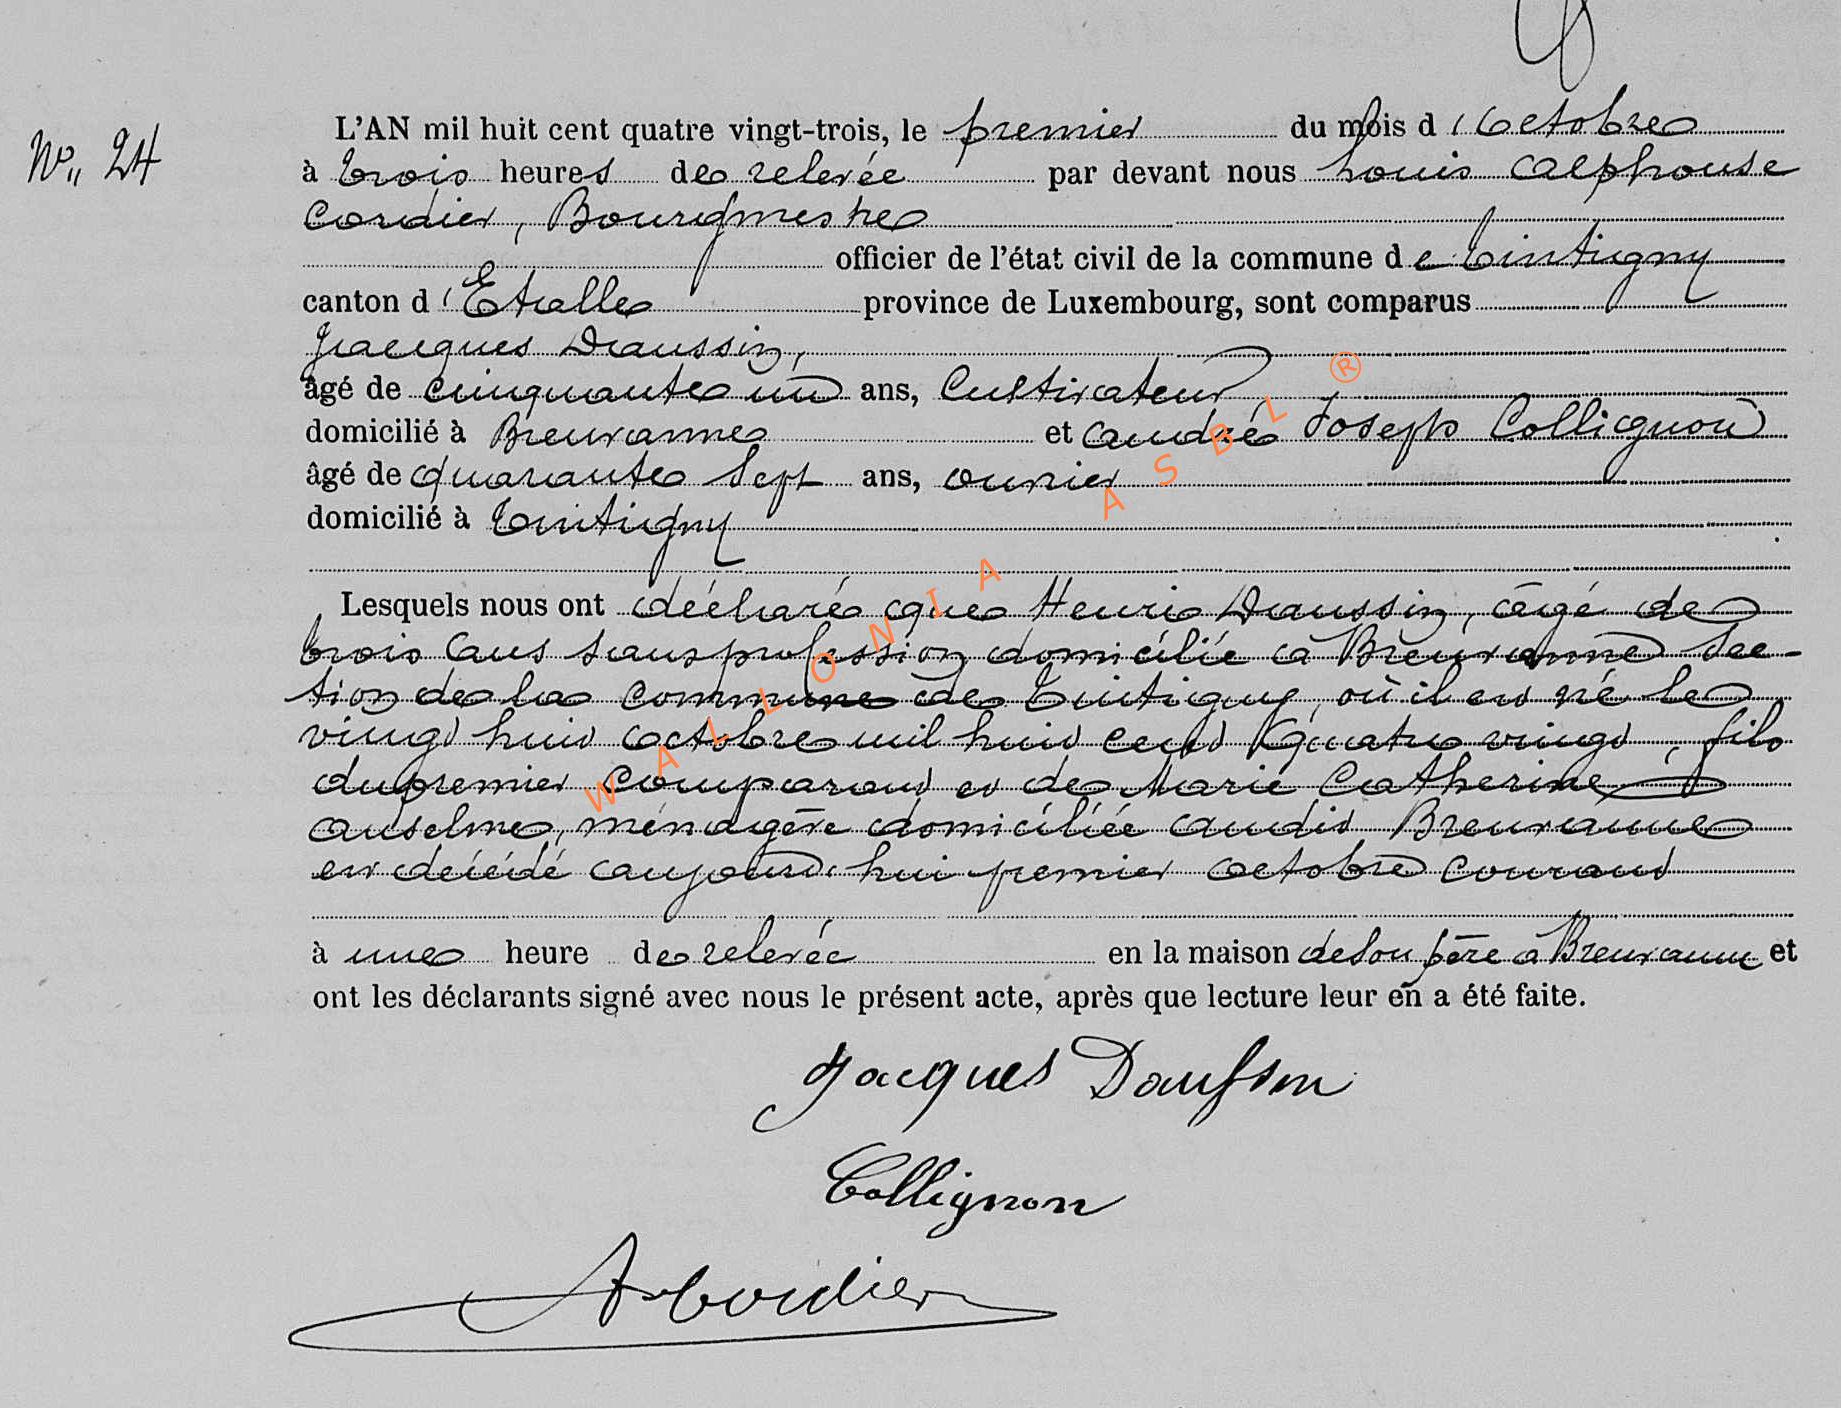 N° 24
L'AN mil huit cent quatre vingt-trois, le premier du mois d'octobre
à trois heures de relevée par devant nous Louis Alphonse
Cordier, Bourgmestre
officier de l'état civil de la commune de Tintigny
canton d'Etalle province de Luxembourg, sont comparus
Jacques Daussin,
âgé de cinquante un ans, Cultivateur
domicilié à Breuvanne et André Joseph Collignon
âgé de quarante sept ans, ouvrier
domicilié à Tintigny
Lesquels nous ont déclaré que Henri Daussin, âgé de
trois ans sans profession domicilié à Breuvanne sec-
tion de la commune de Tintigny, où il est né le
vingt huit octobre mil huit cent quatre vingt, fils
du premier comparant et de Marie Catherine
Anselme, ménagère domiciliée audit Breuvanne
est décédé aujourd'hui premier octobre courant
à une heure de relevée en la maison de son père à Breuvanne et
ont les déclarants signé avec nous le présent acte, après que lecture leur en a été faite.
Jacques Daussin
Collignon
A Cordier
WALLONIA ASBL ®